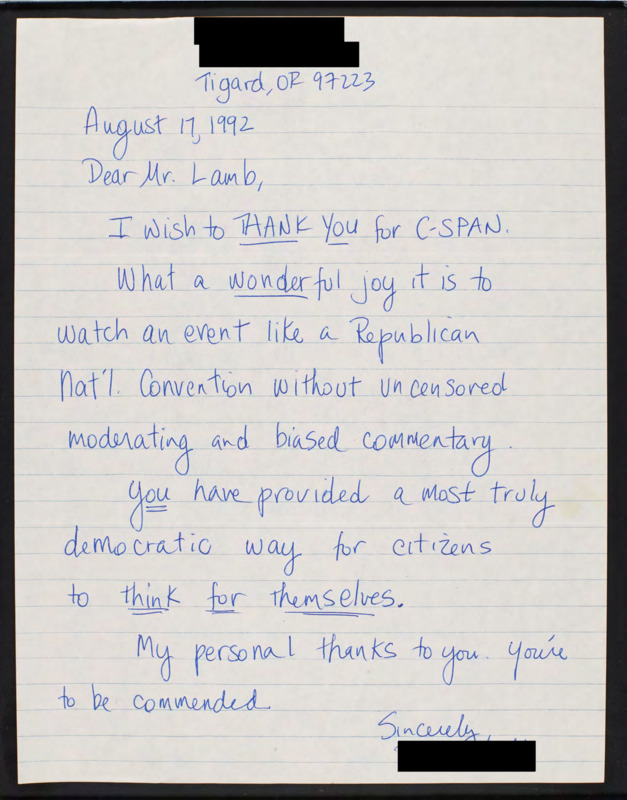 Tigard, OR 97223
August 17, 1992
Dear Mr. Lamb,
I wish to THANK YOU for C-SPAN.
What a wonderful joy it is to
watch an event like a Republican
Nat'l. Convention without uncensored
moderating and biased commentary.
You have provided a most truly
democratic way for citizens
to think for themselves.
My personal thanks to you. You're
to be commended
Sincerely,